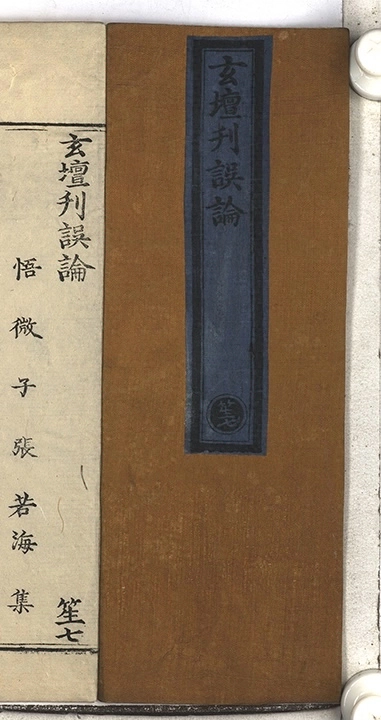 玄壇刋誤論
笙七
玄壇刋誤論 笙七
悟微子張若海集